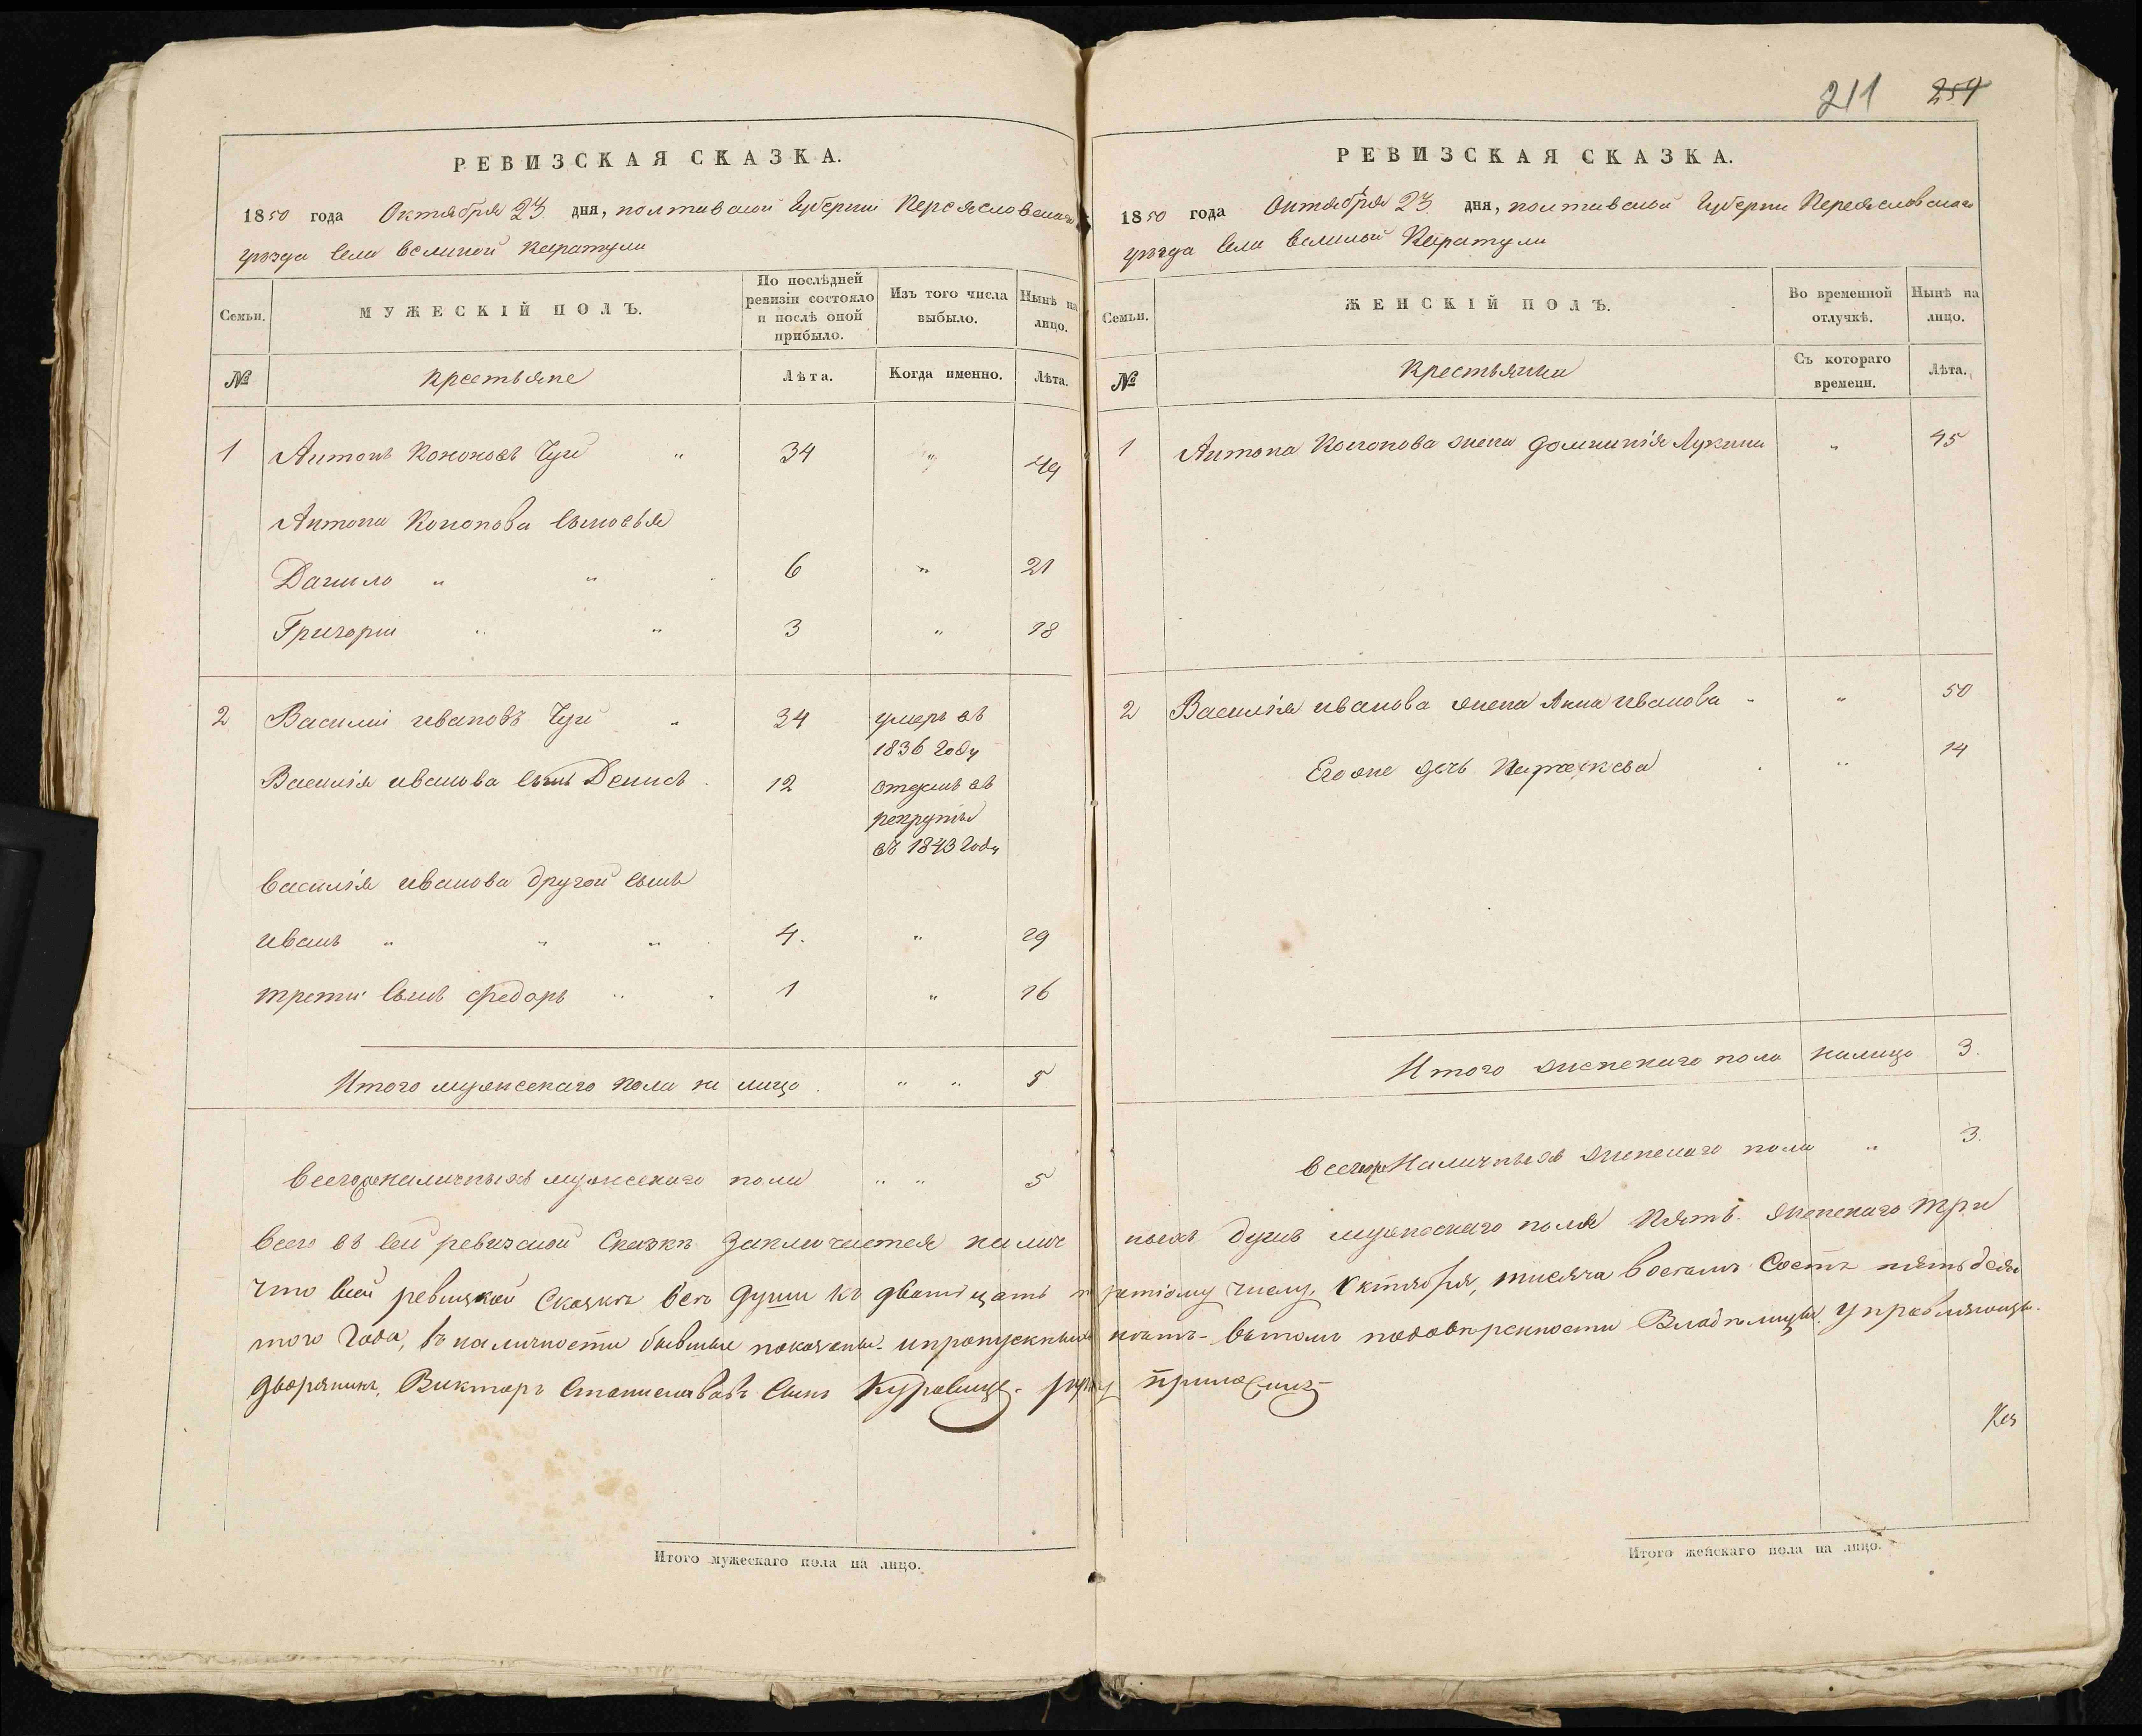 211 254
РЕВИЗСКАЯ СКАЗКА.
1850 года Октября 23 дня, полтавской Губернии Переясловскаго
уѣзда Села великой Каратули
Семьи.
МУЖЕСКІЙ ПОЛЪ.
По послѣдней ревизіи состояло и послѣ оной прибыло.
Изъ того числа выбыло.
Нынѣ на лицо.
№
Крестьяне
Лѣта.
Когда именно.
Лѣта.
1 Антонъ Кононовъ Чуй " 34 " 49
Антона Кононова сыновья
Данило " " 6 " 21
Григорій " " 3 " 18
2 Василій ивановъ Чуй " 34 умеръ въ
1836 году
Василія иванова сынъ Денисъ 12 отданъ въ
рекруты
въ 1843 году
василія иванова другой сынъ
иванъ " " " 4. " 19
третій сынъ Федоръ " 1 " 16
Итого мужескаго пола на лицо " " 5
Всего наличныхъ мужескаго пола " " 5
РЕВИЗСКАЯ СКАЗКА.
1850 года Октября 23 дня, полтавской Губернии Переясловскаго
уѣзда Села великой Каратули
Семьи.
ЖЕНСКІЙ ПОЛЪ.
Во временной отлучкѣ.
Нынѣ на лицо.
№
Крестьянки
Съ котораго времени.
Лѣта.
1 Антона Кононова жена Домникія Лукина " 45
2 Василія иванова жена Анна иванова " " 50
Его же дочь Параскева " 14
Итого женскаго пола налицо 3.
Всего Наличныхъ женскаго пола " 3.
Всего въ сей ревизской Сказкѣ Заключается наличныхъ душъ мужескаго пола Пять. женскаго три
что въ сей ревизкой Сказкѣ всѣ души къ дватцать третіому числу, Октября, тисяча восемъ Сотъ пятьдеся
того Года, въ наличности бывшые показаны. и пропускныхъ нѣтъ- вътомъ подовѣренности Владѣлицы Управляющы-
дворянинъ, Викторъ Станиславовъ Сынъ руку приложилъ
Итого мужескаго пола на лицо.
Итого женскаго пола на лицо.